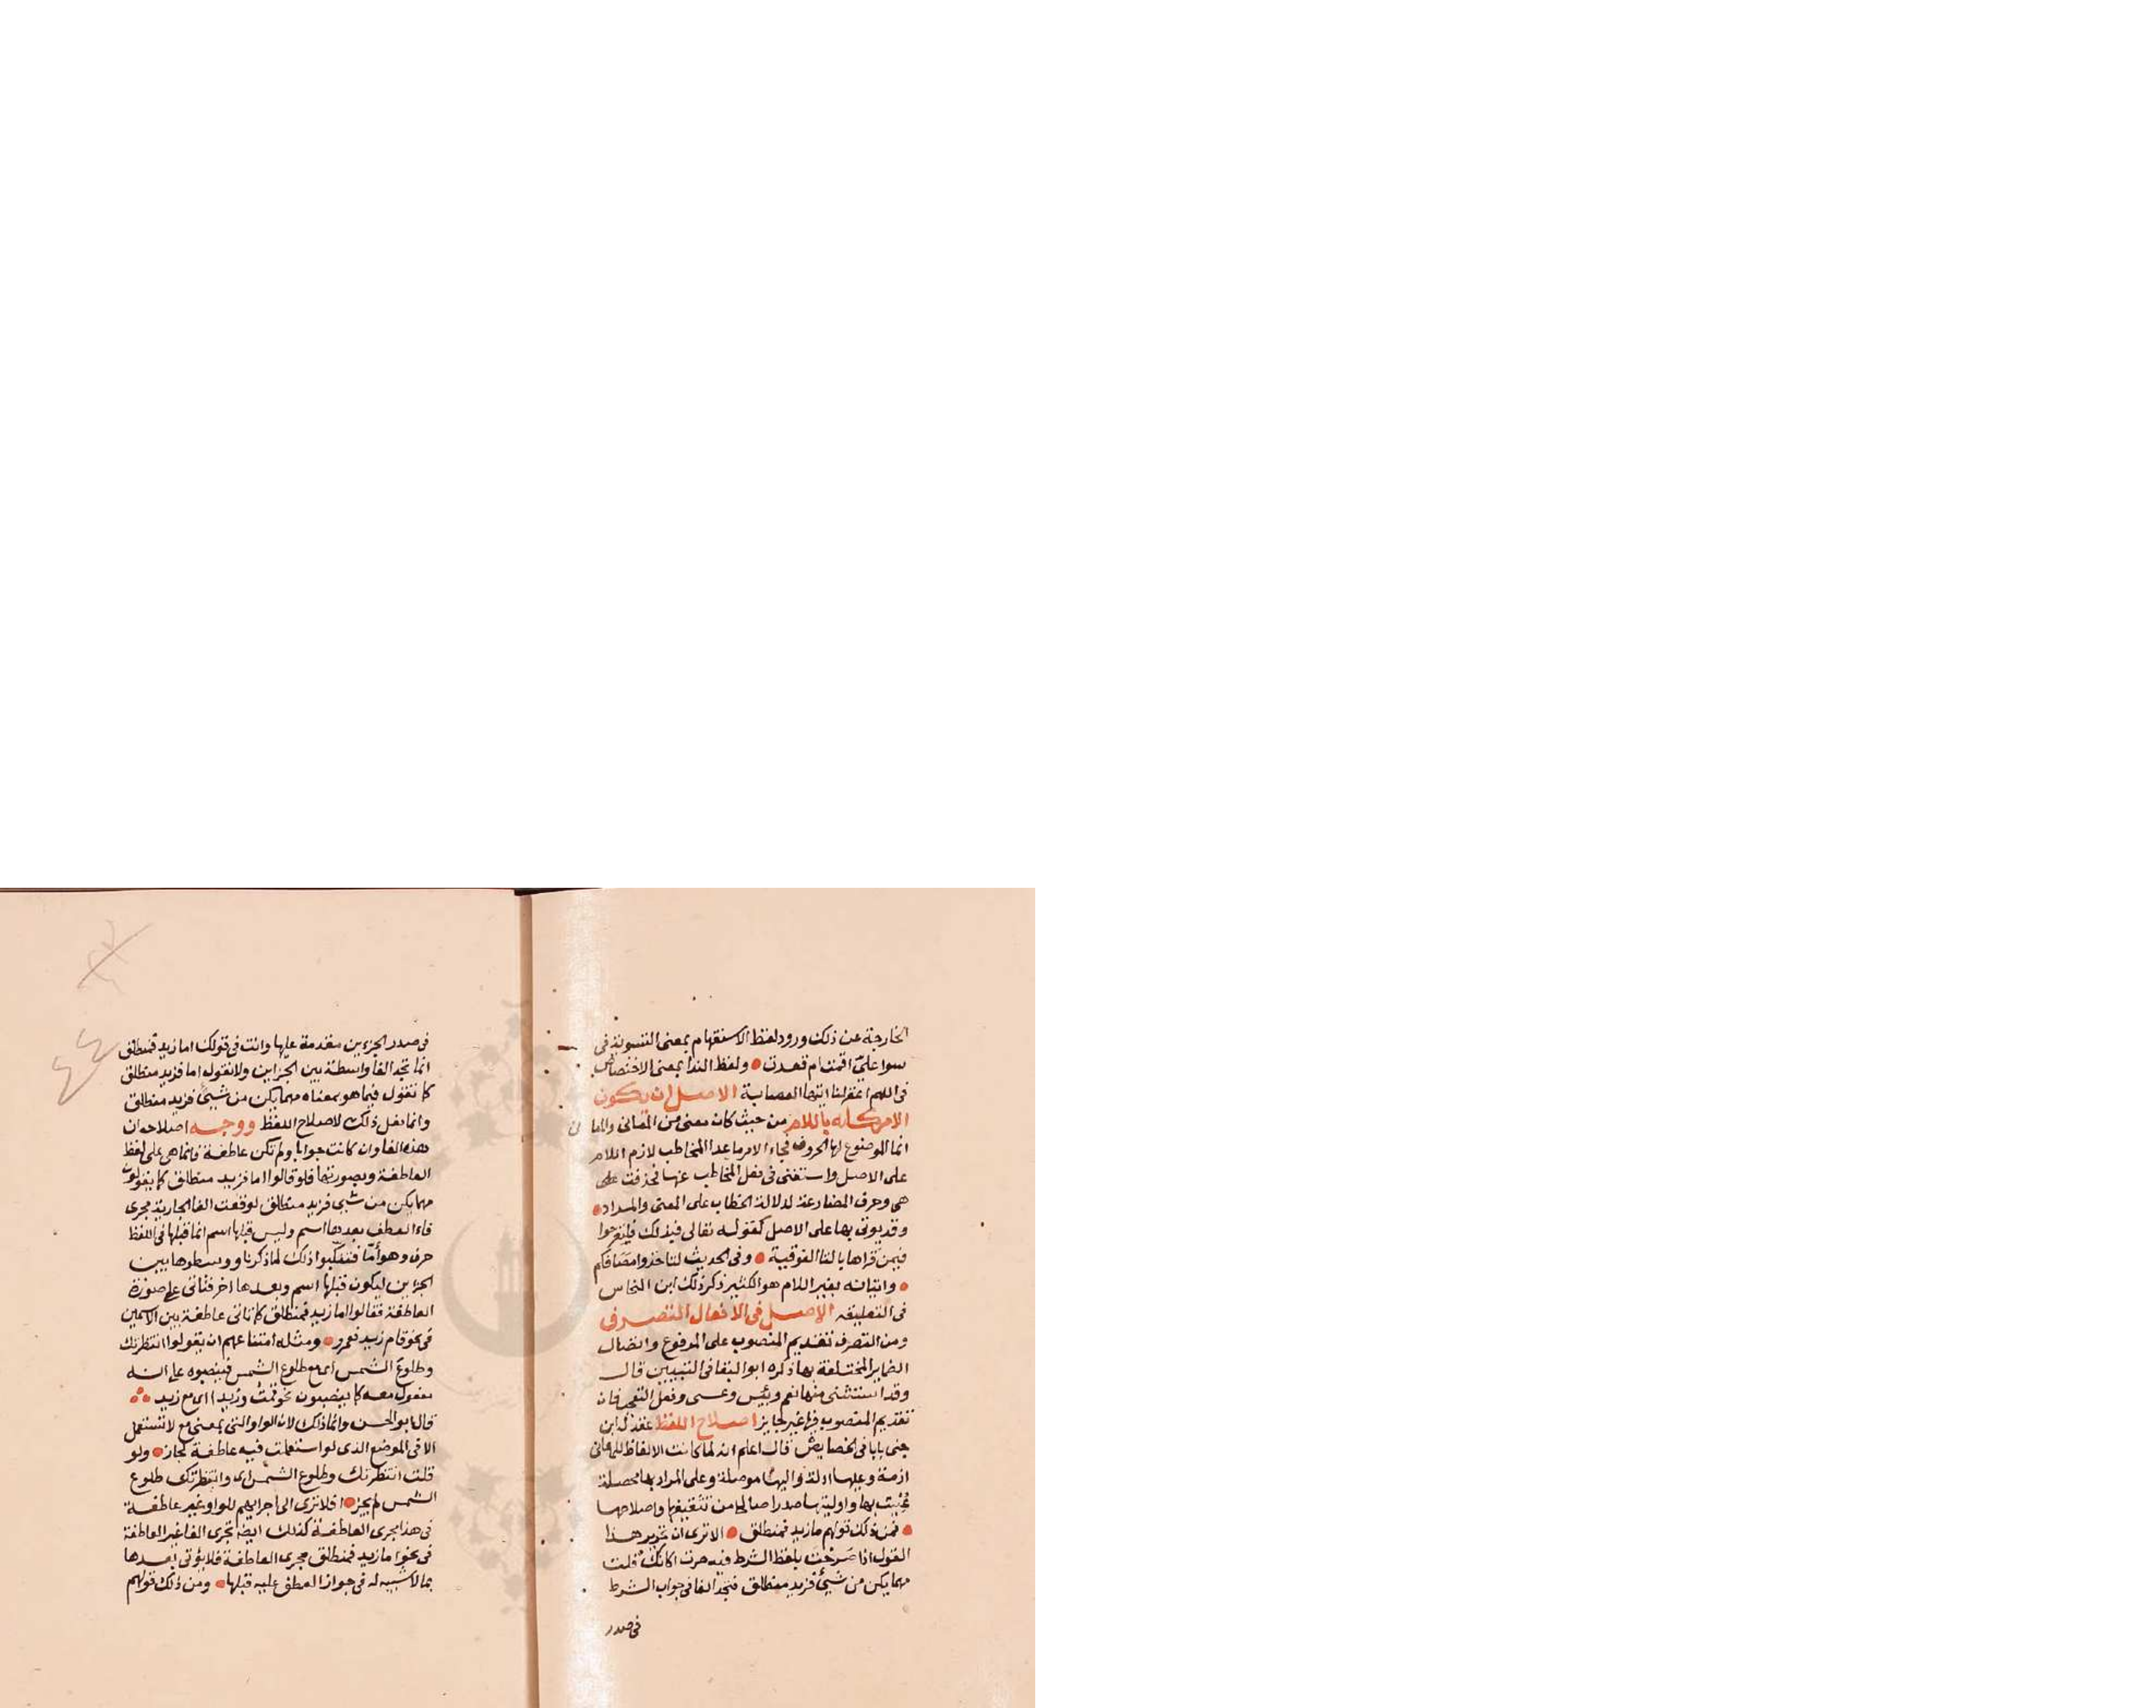 الخارجة عن ذلك ورود لفظ الاستفهام بمعنى التسوية في
سوا عليّ اقمت ام قعدت ولفظ الندا بمعنى الاختصاص
في اللهم اغفر لنا ايتها العصابة الاصل ان يكون
الامر كله باللام من حيث كان معنى من المعاني والمعا ني
انما الموضوع لها الحروف فجاء الامر ما عدا المخاطب لازم اللام
على الاصل واستغنى في فعل المخاطب عنها فحذفت
هي وحرف المضارعة لدلالة الخطاب على المعنى والمراد
وقد يوتى بها على الاصل كقوله تعالى فبذلك فلتفرحوا
فيمن قراها بالتا الفوقية وفي الحديث لتاخذوا مصافكم
واتيانه بغير اللام هو الكثير ذكر ذلك ابن النحاس
في التعليقه الاصل في الافعال التصرف
ومن التصرف تقديم المنصوب على المرفوع واتصال
الضماير المختلفة بها ذكره ابو البقا في التبيين قال
وقد استثنى منها نعم وبئس وعسى وفعل التعجب فان
تقديم المنصوب فيها غير جايز اصلاح اللفظ عقد له ابن
جني بابا في الخصايص قال اعلم انه لما كانت الالفاظ للمعاني
ازمة وعليها ادلة واليها موصلة وعلى المراد بها محصلة
عُنيت بها واوليتها صدرا صالحا من تثقيفها واصلاحها
فمن ذلك قولهم ما زيد فمنطلق الا ترى ان تحرير هذا
القول اذا صرحت بلفظ الشرط فيه صرت الى انك قلت
مهما يكن من شيئ فزيد منطلق فتجد الفا في جواب الشرط
في صدر
في صدر الجزءين مقدمة عليها وانت في قولك اما زيد فمنطلق
انما تجد الفا واسطة بين الجزاين ولا تقول اما فزيد منطلق
كما تقول فيما هو بمعناه مهما يكن من شيئ فزيد منطلق
وانما فعل ذلك لاصلاح اللفظ ووجه اصلاحه ان
هذه الفا وان كانت جوابا ولم تكن عاطفة فانما هي على لفظ
العاطفة وبصورتها فلو قالوا اما فزيد منطلق كما يقولون
مهما يكن من شيى فزيد منطلق لوقعت الفا الجارية مجرى
فاء العطف بعدها اسم وليس قبلها اسم انما قبلها في اللفظ
حرف وهو أمّا فتنكبوا ذلك لما ذكرنا ووسطوها بين
الجزاين ليكون قبلها اسم وبعدها اخر فتاتي على صورة
العاطفة فقالوا اما زيد فمنطلق كما تاتي عاطفة بين الاسمين
في نحو قام زيد فعمرو ومثله امتناعهم ان يقولوا انتظرتك
وطلوعَ الشمس اى مع طلوع الشمس فينصبوه على انه
مفعول معه كما ينصبون نحو قمت وزيدا اى مع زيد
قال ابو الحسن وانما ذاك لان الواو التي بمعنى مع لا تستعمل
الا في الموضع الذى لو استعملت فيه عاطفة لجاز ولو
قلت انتظرتك وطلوع الشمس اى وانتظرتك طلوع
الشمس لم يجز افلا ترى الى اجرايهم للواو غير عاطفة
في هذا مجرى العاطفة كذلك ايضا تجرى الفا غير العاطفة
في نحو اما زيد فمنطلق مجرى العاطفة فلا يؤتى بعدها
بما لا شبيه له في جواز العطف عليه قبلها ومن ذلك قولهم